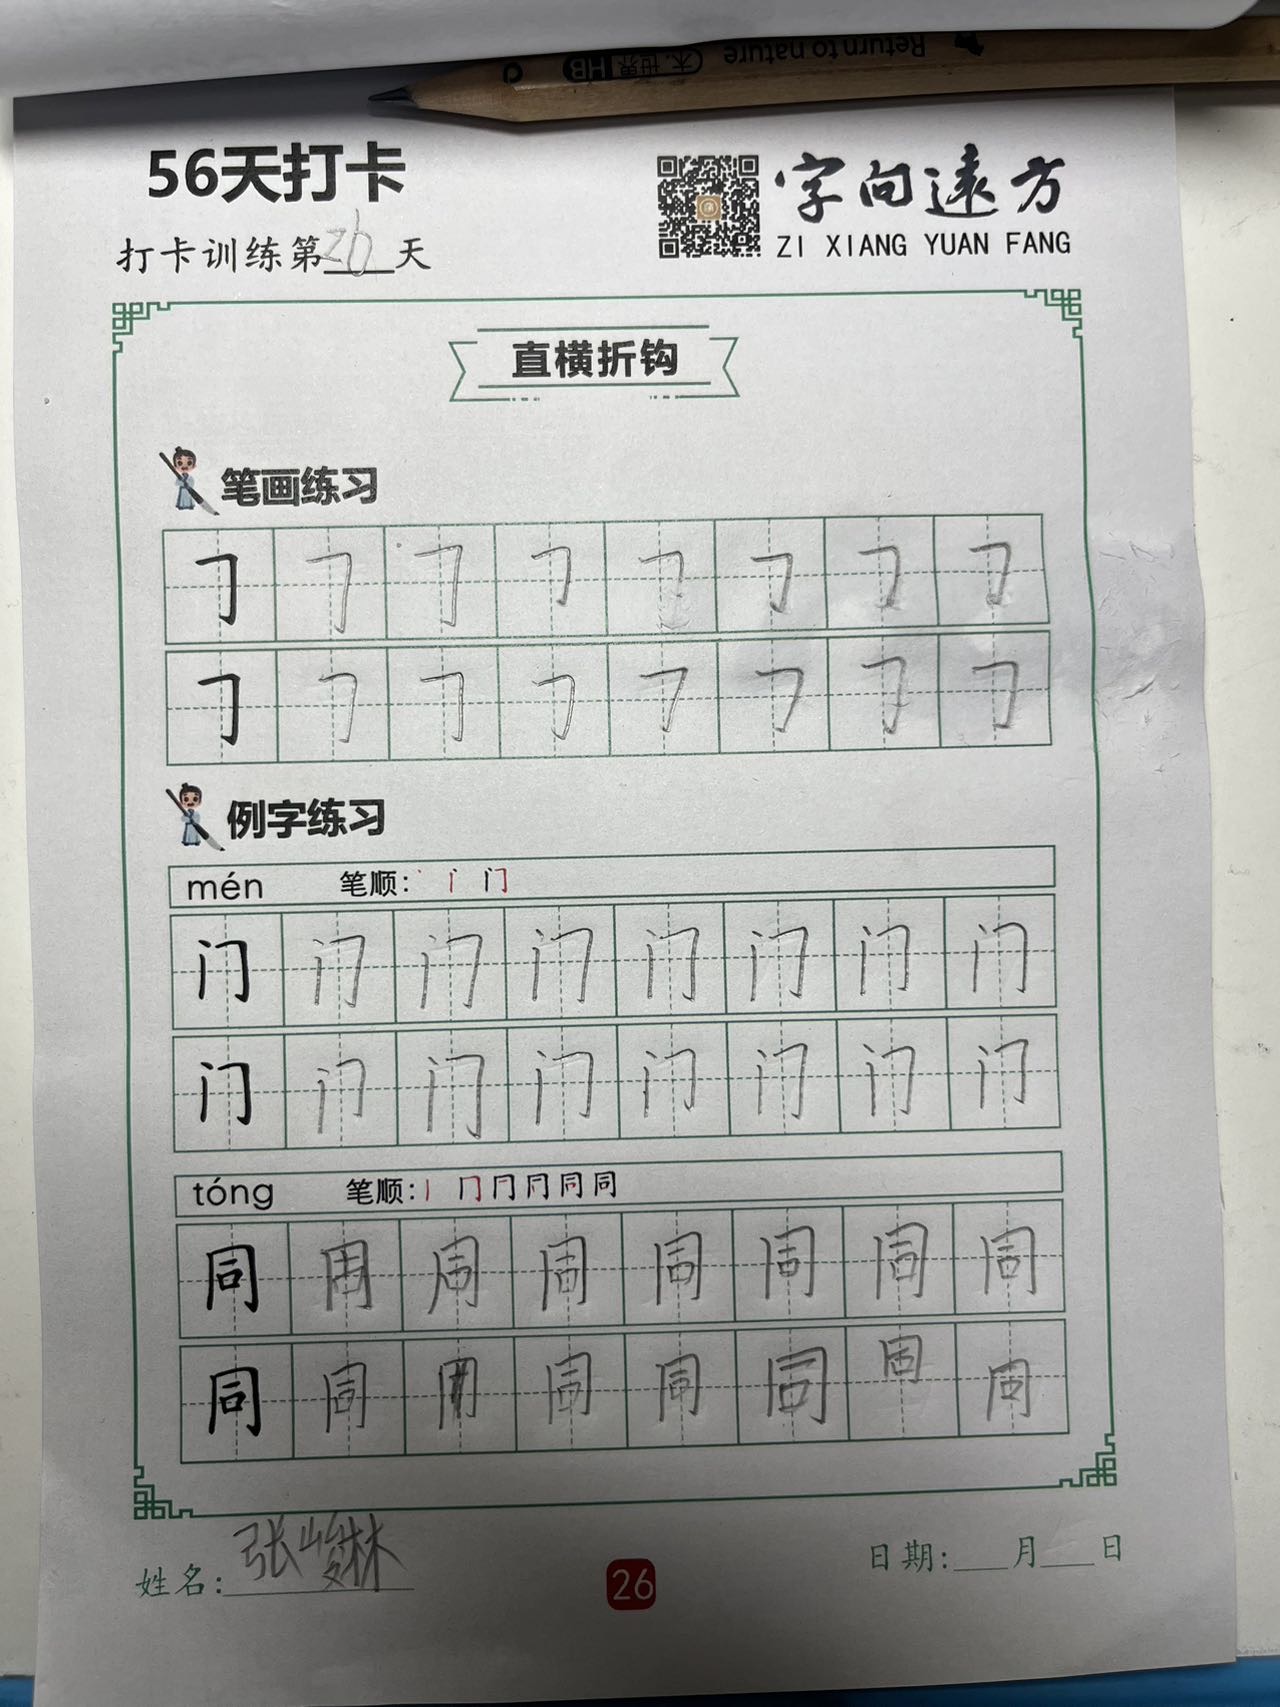 Return to nature 木.世界 HB
56天打卡
字向遠方
ZI XIANG YUAN FANG
打卡训练第26天
直横折钩
笔画练习
𠃌 𠃌 𠃌 𠃌 𠃌 𠃌 𠃌 𠃌
𠃌 𠃌 𠃌 𠃌 𠃌 𠃌 𠃌 𠃌
例字练习
mén 笔顺: 丶 丨 门
门 门 门 门 门 门 门 门
门 门 门 门 门 门 门 门
tóng 笔顺: 丨 冂 冂 冋 同 同
同 同 同 同 同 同 同 同
同 同 同 同 同 同 同 同
姓名: 张峻林
26
日期: 月 日